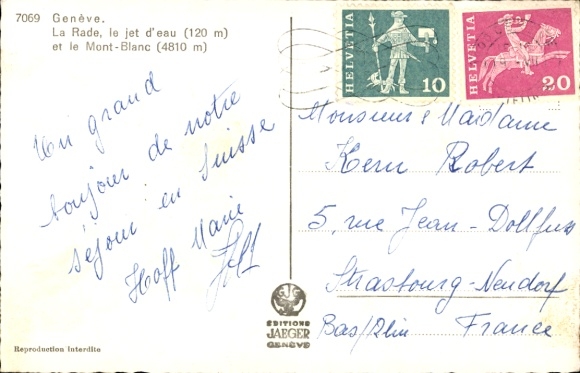 7069 Genève.
La Rade, le jet d'eau (120 m)
et le Mont-Blanc (4810 m)
HELVETIA
10
HELVETIA
20
Un grand
bonjour de notre
séjour en Suisse
Hoff Marie
Monsieur & Madame
Kern Robert
5, rue Jean-Dollfus
Strasbourg-Neudorf
Bas/Rhin France
EDITIONS
JAEGER
GENÈVE
Reproduction interdite